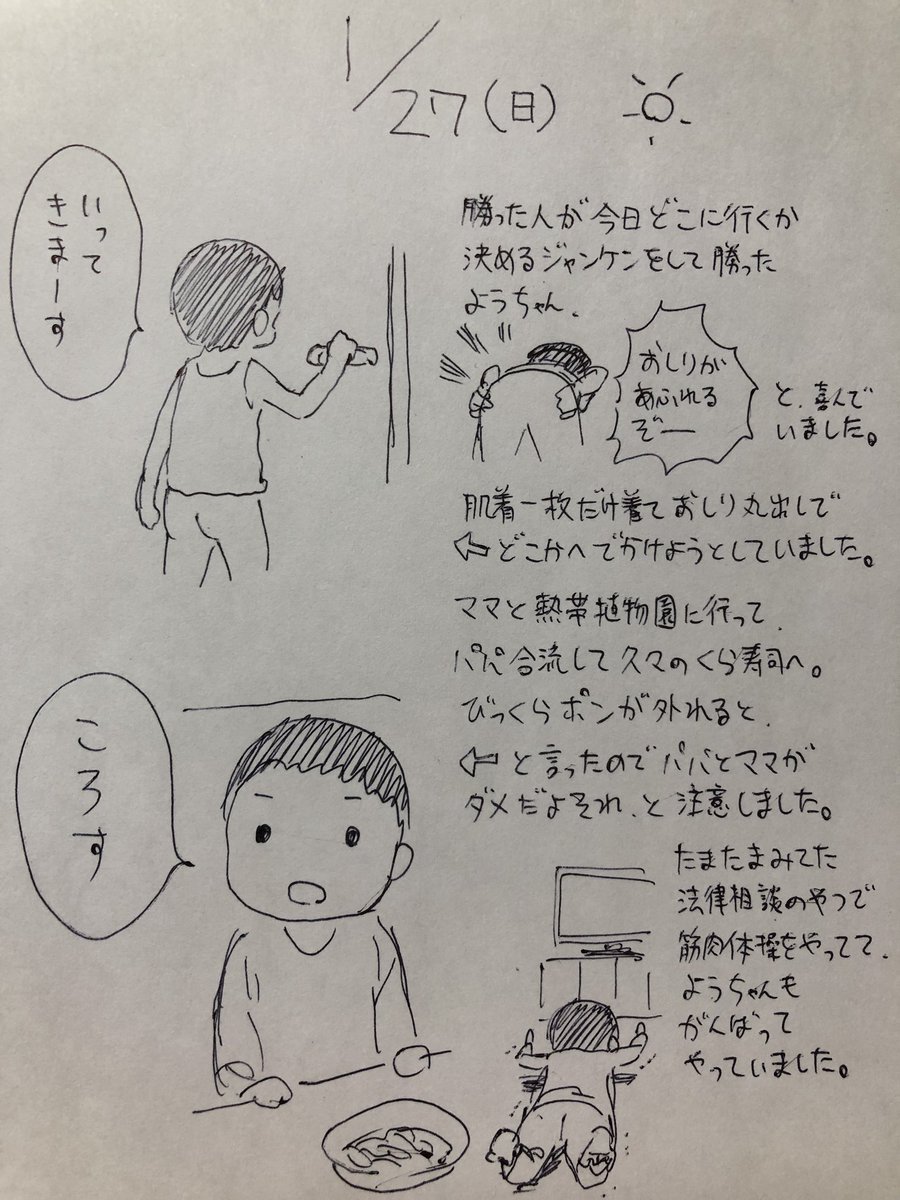 1/27(日)
いって
きまーす
勝った人が今日どこに行くか
決めるジャンケンをして勝った
ようちゃん、
おしりが
あふれる
ぞー
と、喜んで
いました。
肌着一枚だけ着ておしり丸出しで
⇦どこかへでかけようとしていました。
ママと熱帯植物園に行って、
パパ合流して久々のくら寿司へ。
びっくらポンが外れると、
⇦と言ったのでパパとママが
ダメだよそれ、と注意しました。
ころす
たまたまみてた
法律相談のやつで
筋肉体操をやってて、
ようちゃんも
がんばって
やっていました。